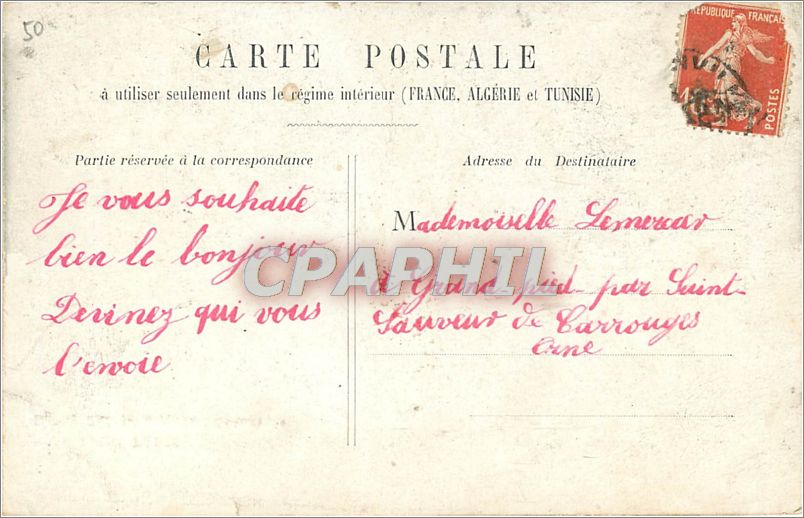 50
CARTE POSTALE
à utiliser seulement dans le régime intérieur (FRANCE, ALGÉRIE et TUNISIE)
RÉPUBLIQUE FRANÇAISE
POSTES
Partie réservée à la correspondance
Je vous souhaite
bien le bonjour
Devinez qui vous
l'envoie
CPAPHIL
Adresse du Destinataire
Mademoiselle
par Saint-
Sauveur de Carrouges
Orne